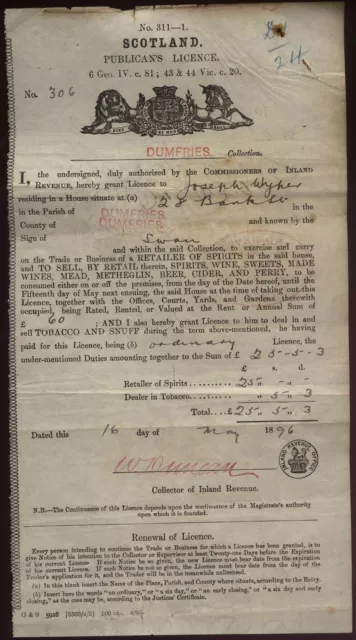 No. 311—1.
SCOTLAND.
PUBLICAN'S LICENCE.
6 Geo. IV. c. 81; 43 & 44 Vic. c. 20.
No. 306
DUMFRIES. Collection.
I, the undersigned, duly authorized by the COMMISSIONERS OF INLAND
REVENUE, hereby grant Licence to Joseph Wyper
residing in a House situate at (a) 28 Bank St
in the Parish of DUMFRIES in the
County of DUMFRIES and known by the
Sign of Swan
and within the said Collection, to exercise and carry
on the Trade or Business of a RETAILER OF SPIRITS in the said house,
and TO SELL, BY RETAIL therein, SPIRITS, WINE, SWEETS, MADE
WINES, MEAD, METHEGLIN, BEER, CIDER, AND PERRY, to be
consumed either on or off the premises, from the Date hereof, until the
Fifteenth day of May next ensuing, the said House at the time of taking out this
Licence, together with the Offices, Courts, Yards, and Gardens therewith
occupied, being Rated, Rented, or Valued at the Rent or Annual Sum of
£ 60 ; AND I also hereby grant Licence to him to deal in and
sell TOBACCO AND SNUFF during the term above-mentioned, he having
paid for this Licence, being (b) ordinary Licence, the
under-mentioned Duties amounting together to the Sum of £ 25-5-3
£ s. d.
Retailer of Spirits......... 25 " - " -
Dealer in Tobacco......... " 5 " 3
Total...£ 25 " 5 " 3
Dated this 16 day of May 1896
Collector of Inland Revenue.
INLAND REVENUE OFFICE
N.B.—The Continuance of this Licence depends upon the continuance of the Magistrate's authority
upon which it is founded.
Renewal of Licence.
Every person intending to continue the Trade or Business for which a Licence has been granted, is to
give Notice of his intention to the Collector or Supervisor at least Twenty-one Days before the Expiration
of his current Licence. If such Notice be so given, the new Licence must bear date from the day of the
expiration of his current Licence. If such Notice be not so given, the Licence must bear date from the day of the
Trader's application for it, and the Trader will in the meanwhile be unlicensed.
(a) In this blank insert the Name of the Place, Parish, and County where situate, according to the Entry.
(b) Insert here the words "an ordinary," or "a six day," or "an early closing," or "a six day and early
closing," as the case may be, according to the Justices' Certificate.